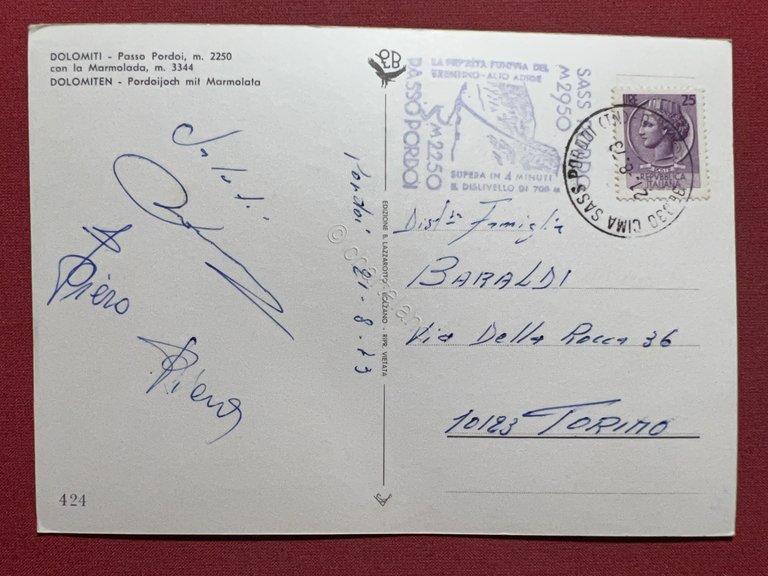 DOLOMITI - Passo Pordoi, m. 2250
con la Marmolada, m. 3344
DOLOMITEN - Pordoijoch mit Marmolata
Saluti
Piero
424
Pordoi 21-8-73
EDIZIONE B. LAZZAROTTO - BOLZANO - RIPR. VIETATA
LA FUNIVIA DEL
TRENTINO-ALTO ADIGE
SASS PORDOI
M 2950
PASSO PORDOI
M 2250
SUPERA IN 4 MINUTI
IL DISLIVELLO DI 700 m
LIRE 25
REPVBBLICA
ITALIANA
CIMA SASS PORDOI (TN)
21-8-73
Dist.ta Famiglia
BARALDI
Via Della Rocca 36
10123 TORINO